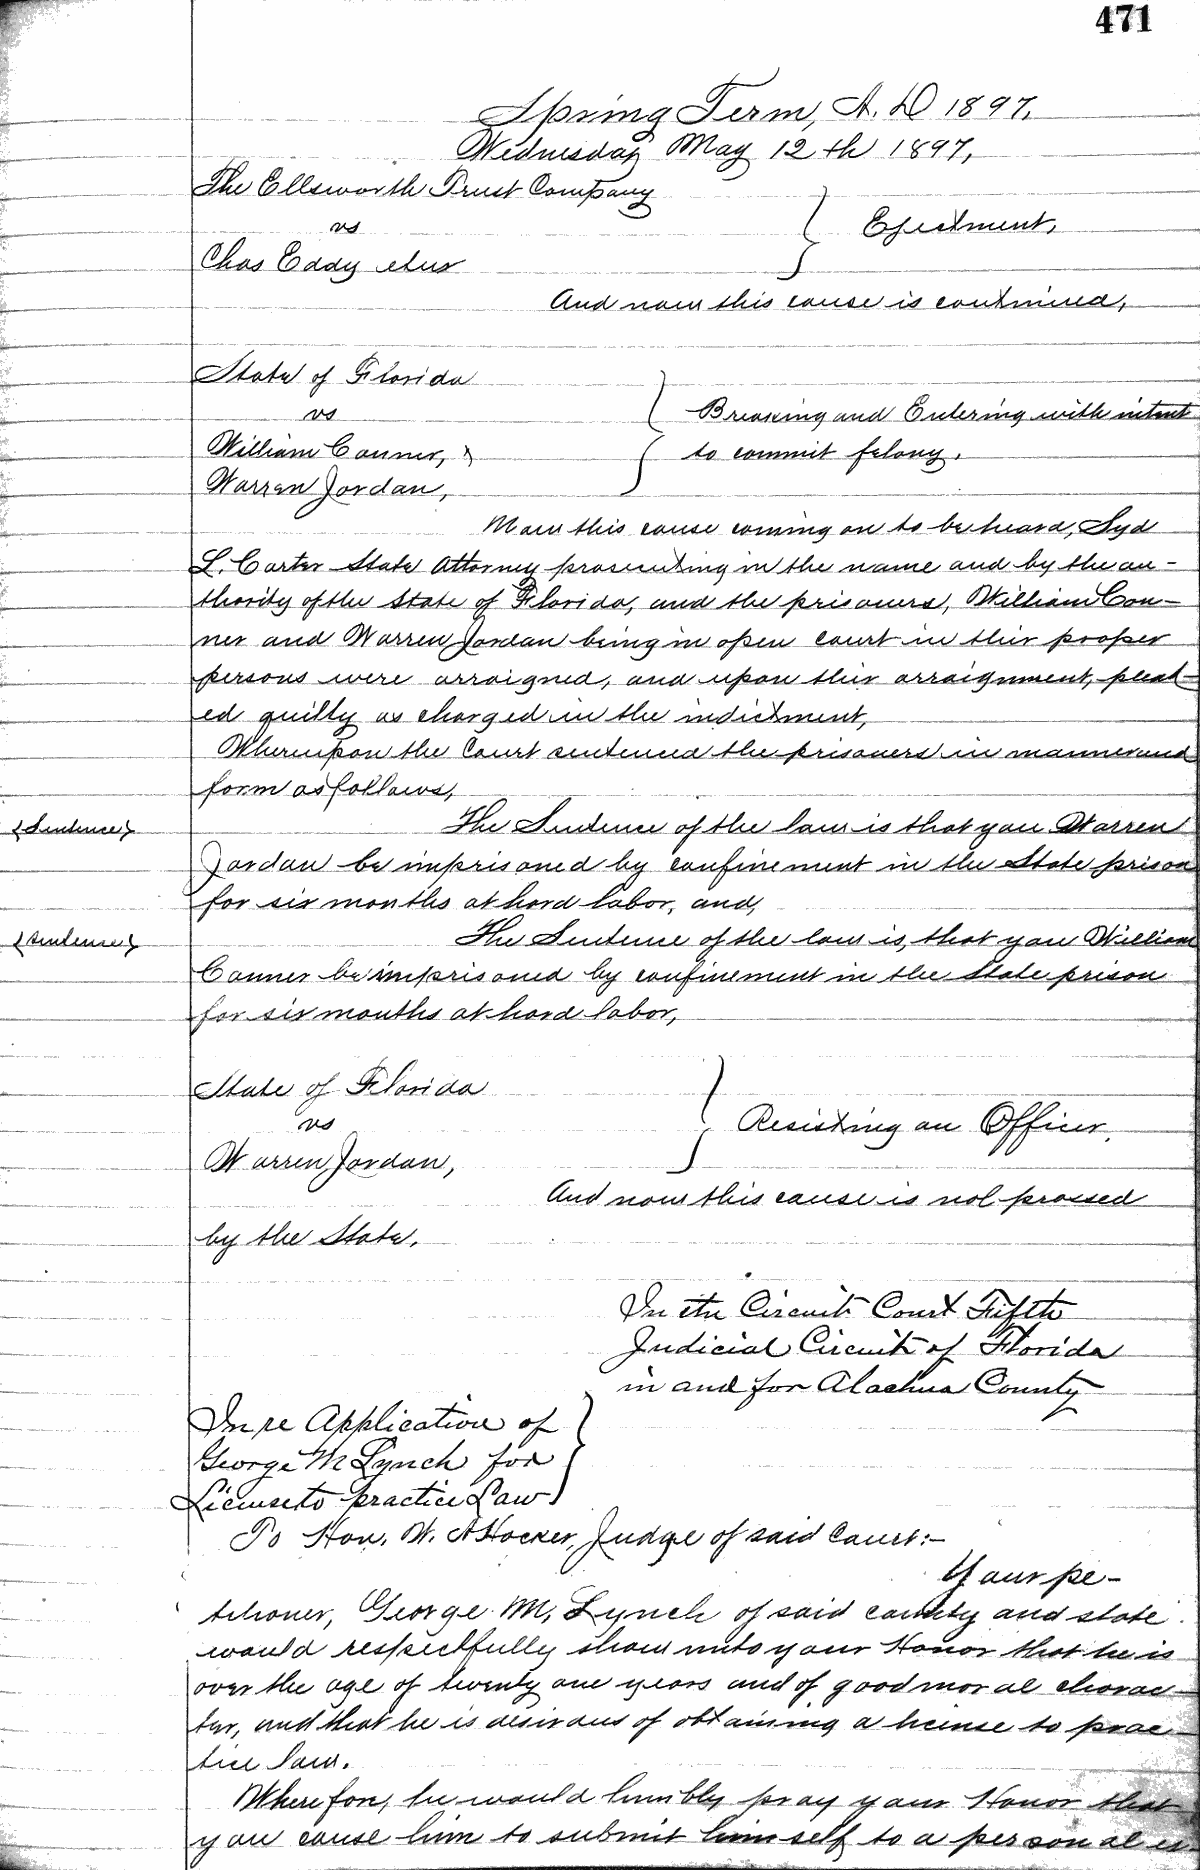 471
Spring Term, A. D 1897,
Wednesday May 12th 1897,
The Ellsworth Trust Company
vs
Ejectment,
Chas Eddy etux
And now this cause is continued,
State of Florida
vs
Breaking and Entering with intent
William Conner,
to commit felony.
Warren Jordan,
Now this cause coming on to be heard, Syd
L. Carter State Attorney prosecuting in the name and by the au-
thority of the State of Florida, and the prisoners, William Con-
ner and Warren Jordan being in open court in thir proper
persons were arraigned, and upon thir arraignment, plead-
ed guilty as charged in the indictment,
Whereupon the Court sentenced the prisoners in manner and
form as follows,
{Sentence} The Sentence of the law is that you Warren
Jordan be imprisoned by confinement in the State prison
for six months at hard labor, and,
{Sentence} The Sentence of the law is, that you William
Conner be imprisoned by confinement in the State prison
for six months at hard labor,
State of Florida
vs
Resisting an Officer,
Warren Jordan,
And now this cause is nol prossed
by the State.
In the Circuit Court Fifth
Judicial Circuit of Florida
in and for Alachua County
In re Application of
George M Lynch for
License to practice Law
To Hon. W. A Hocker, Judge of said Court:-
Your pe-
titioner, George M. Lynch of said county and state
would respectfully show unto your Honor that he is
over the age of twenty one years and of good moral charac-
ter, and that he is desirous of obtaining a license to prac-
tice law.
Wherefor, he would humbly pray your Honor that
you cause him to submit himself to a personal ex-